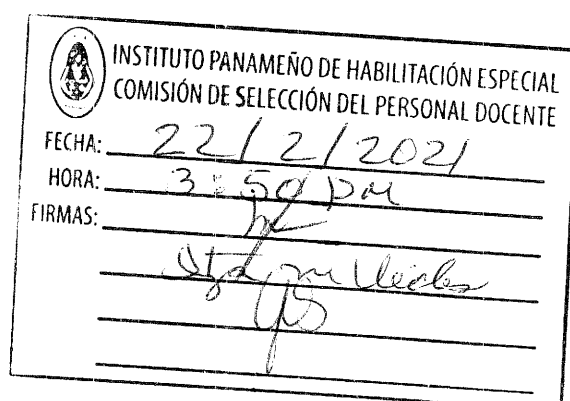 INSTITUTO PANAMEÑO DE HABILITACIÓN ESPECIAL
COMISIÓN DE SELECCIÓN DEL PERSONAL DOCENTE
FECHA: 22/2/2021
HORA: 3:50 pm
FIRMAS: